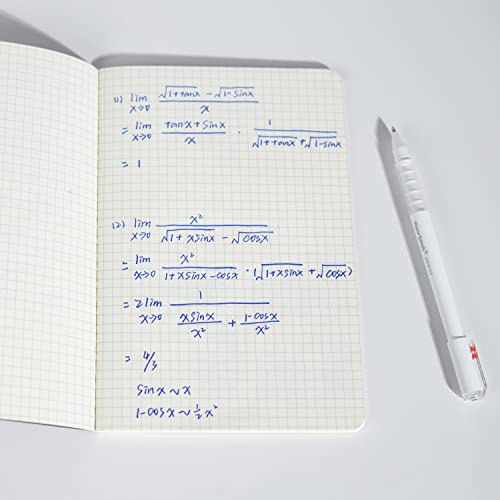 (1) lim x→0 (√(1+tanx) - √(1-sinx)) / x
= lim x→0 (tanx+sinx) / x · 1 / (√(1+tanx) + √(1-sinx))
= 1
(2) lim x→0 x² / (√(1+xsinx) - √(cosx))
= lim x→0 x² / (1+xsinx-cosx) · (√(1+xsinx) + √(cosx))
= 2 lim x→0 1 / (xsinx / x² + (1-cosx) / x²)
= 4/3
sinx ~ x
1-cosx ~ ½x²